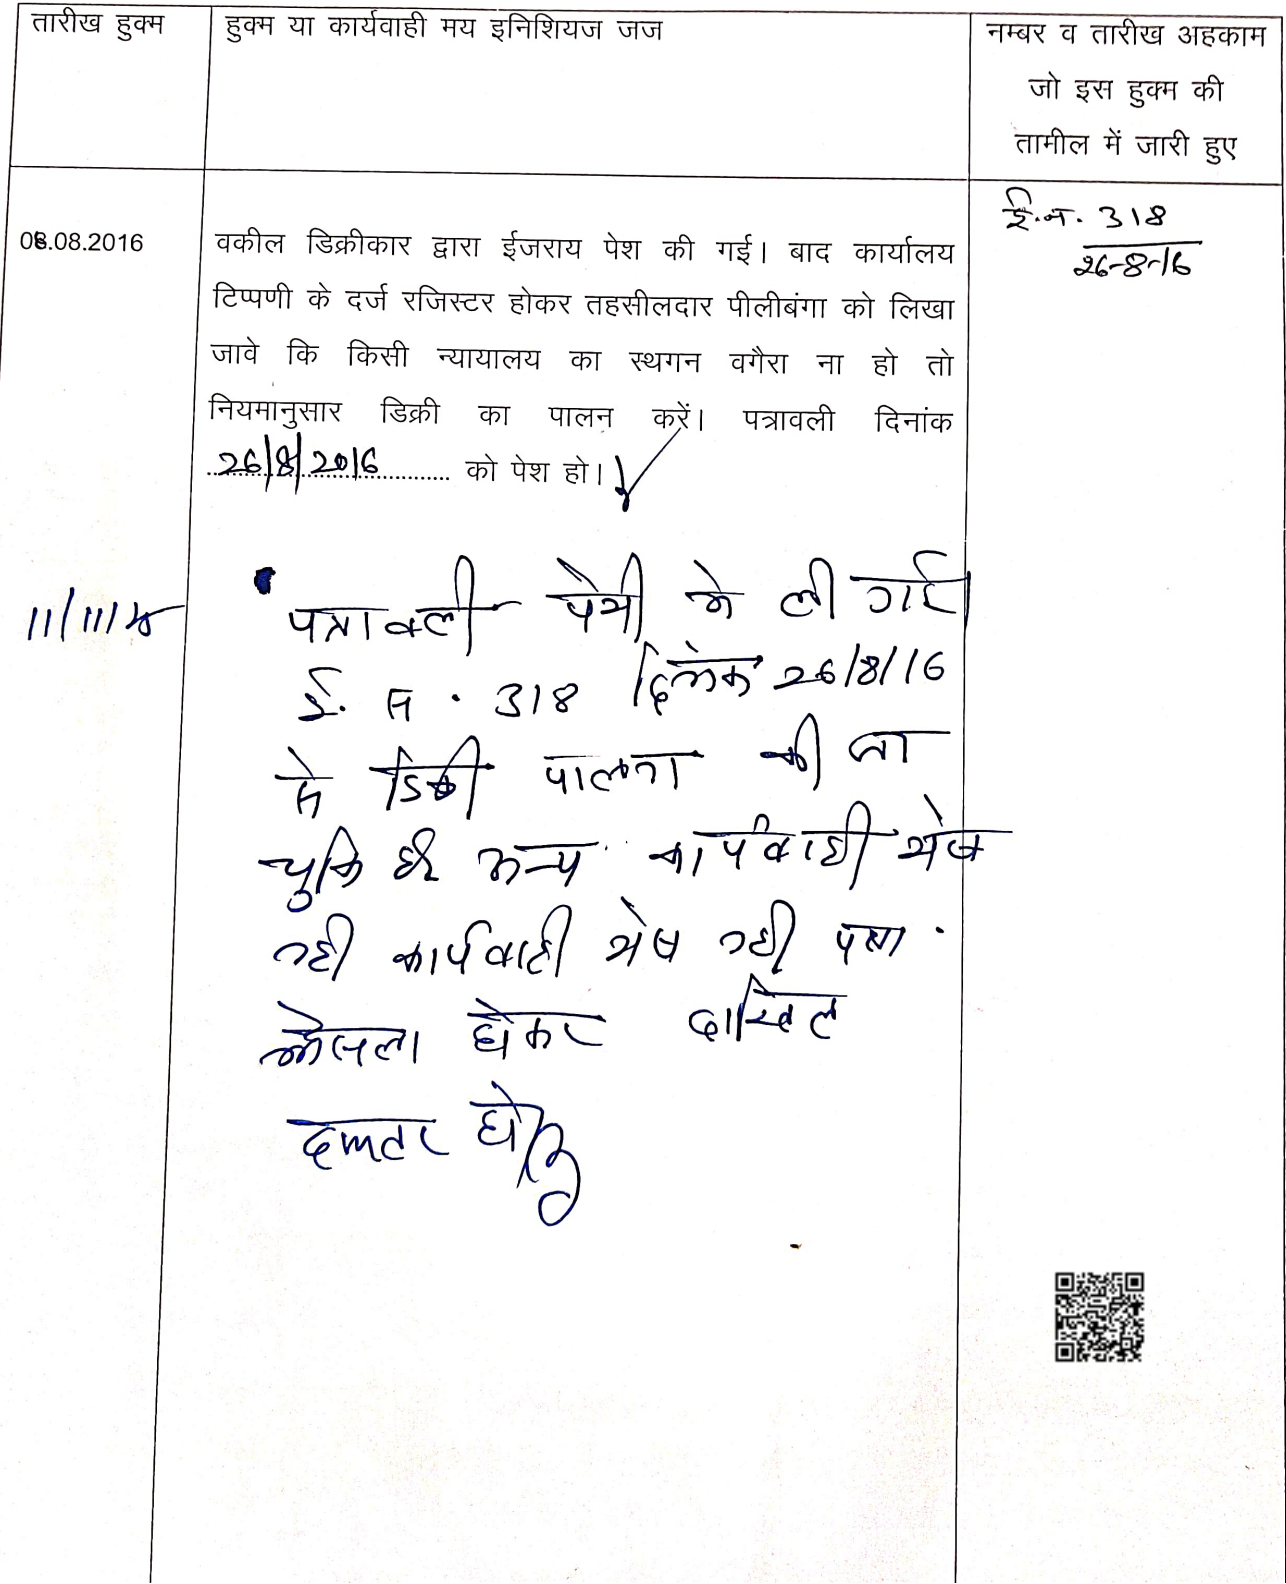 तारीख हुक्म
हुक्म या कार्यवाही मय इनिशियज जज
नम्बर व तारीख अहकाम
जो इस हुक्म की
तामील में जारी हुए
08.08.2016
वकील डिक्रीकार द्वारा ईजराय पेश की गई। बाद कार्यालय
टिप्पणी के दर्ज रजिस्टर होकर तहसीलदार पीलीबंगा को लिखा
जावे कि किसी न्यायालय का स्थगन वगैरा ना हो तो
नियमानुसार डिक्री का पालन करें। पत्रावली दिनांक
26/8/2016 को पेश हो।
ई.न. 318
26-8-16
पत्रावली पेशी मे ली गई
ई. न. 318 दिनांक 26/8/16
से डिक्री पालना की जा
चुकि है अन्य कार्यवाही शेष
नही कार्यवाही शेष नही पत्रा.
फैसला होकर दाखिल
दफ्तर हो